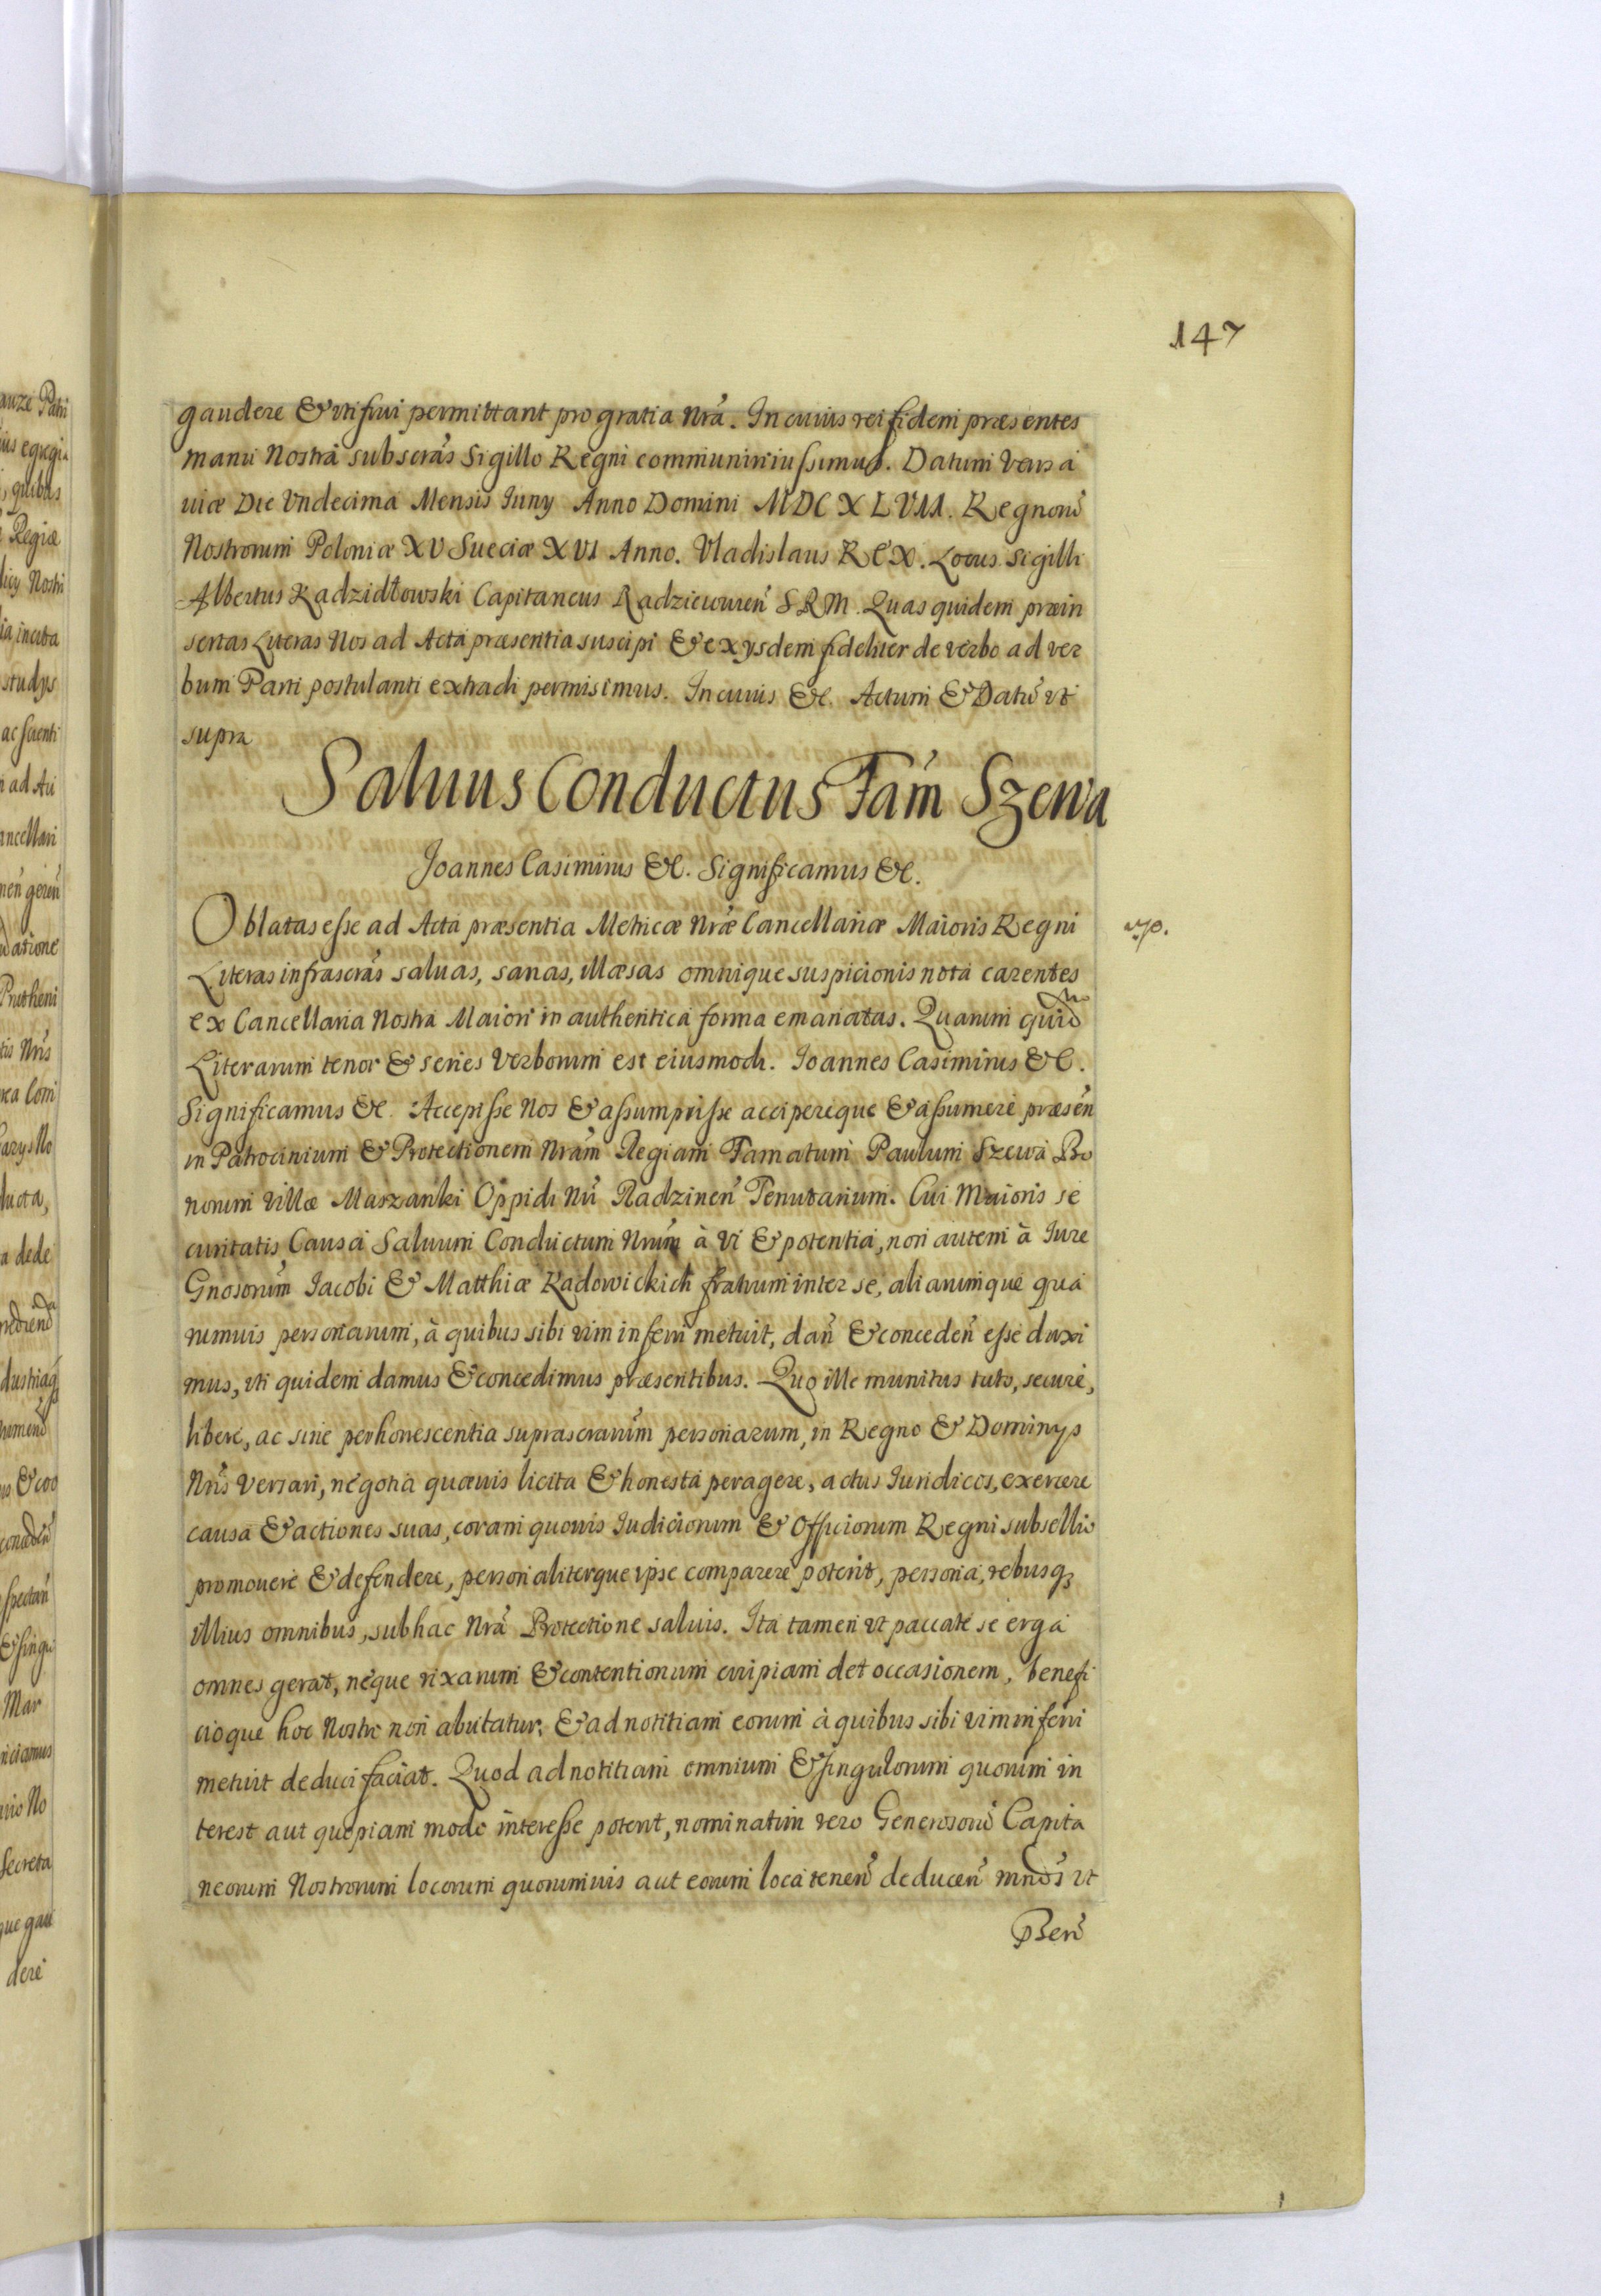 147
gaudere & vtifrui permittant pro gratia Nrã. In cuius rei fidem præsentes
manu Nostrâ subscrãs Sigillo Regni communiri iussimus. Datum Varsa
uiæ Die Vndecima Mensis Iuny Anno Domini MDCXLVII. Regnorũ
Nostrorum Poloniæ XV Sueciæ XVI Anno. Vladislaus REX. Locus Sigilli
Albertus Kadzidłowski Capitaneus Radzieiouień SRM. Quas quidem præin
sertas Literas Nos ad Acta præsentia suscipi & ex ysdem fideliter de verbo ad ver
bum Parti postulanti extradi permisimus. In cuius &c. Actum & Datũ vt
supra
Saluus Conductus Fam̃ Szewa
Joannes Casimirus &c. Significamus &c.
Oblatas esse ad Acta præsentia Metricæ Nræ Cancellariæ Maioris Regni
Literas infrascrãs saluas, sanas, illæsas omnique suspicionis notâ carentes
ex Cancellaria Nostra Maiori in authentica forma emanatas. Quarum quid
Literarum tenor & series Verborum est eiusmodi. Joannes Casimirus &c.
Significamus &c. Accepisse Nos & assumpsisse accipereque & assumere præsen̄
in Patrocinium & Protectionem Nrãm Regiam Famatum Paulum Szewa Bo
norum Villæ Marzanki Oppidi Nr̃i Radzinen̄ Tenutarium. Cui Maioris se
curitatis Causâ Saluum Conductum Nrũm à vi & potentia, non autem à Iure
Gnosorũm Iacobi & Matthiæ Kadowickich fratrum inter se, aliarumque qua
rumuis personarum, à quibus sibi vim inferri metuit, dañ & conceden̄ esse duxi
mus, vti quidem damus & concedimus præsentibus. Quo ille munitus tuto, secure,
libere, ac sine perhorescentia suprascrarũm personarum, in Regno & Dominys
Nr̃is versari, negotia quæuis licita & honesta peragere, actus Iuridicos, exercere
causa & actiones suas, coram quouis Iudiciorum & Officiorum Regni subsellio
promouere & defendere, personaliterque ipse comparere poterit, persona, rebusq;
illius omnibus, sub hac Nrã Protectione saluis. Ita tamen vt paccate se erga
omnes gerat, neque rixarum & contentionum cuipiam det occasionem, benefi
cioque hoc Nostro non abutatur; & ad notitiam eorum à quibus sibi vim inferri
metuit deduci faciat. Quod ad notitiam omnium & singulorum quorum in
terest aut quopiam modo interesse poterit, nominatim vero Generosorũ Capita
neorum Nostrorum locorum quorumuis aut eorum loca tenen̄ deducen̄ mndõs vt
Ben̄